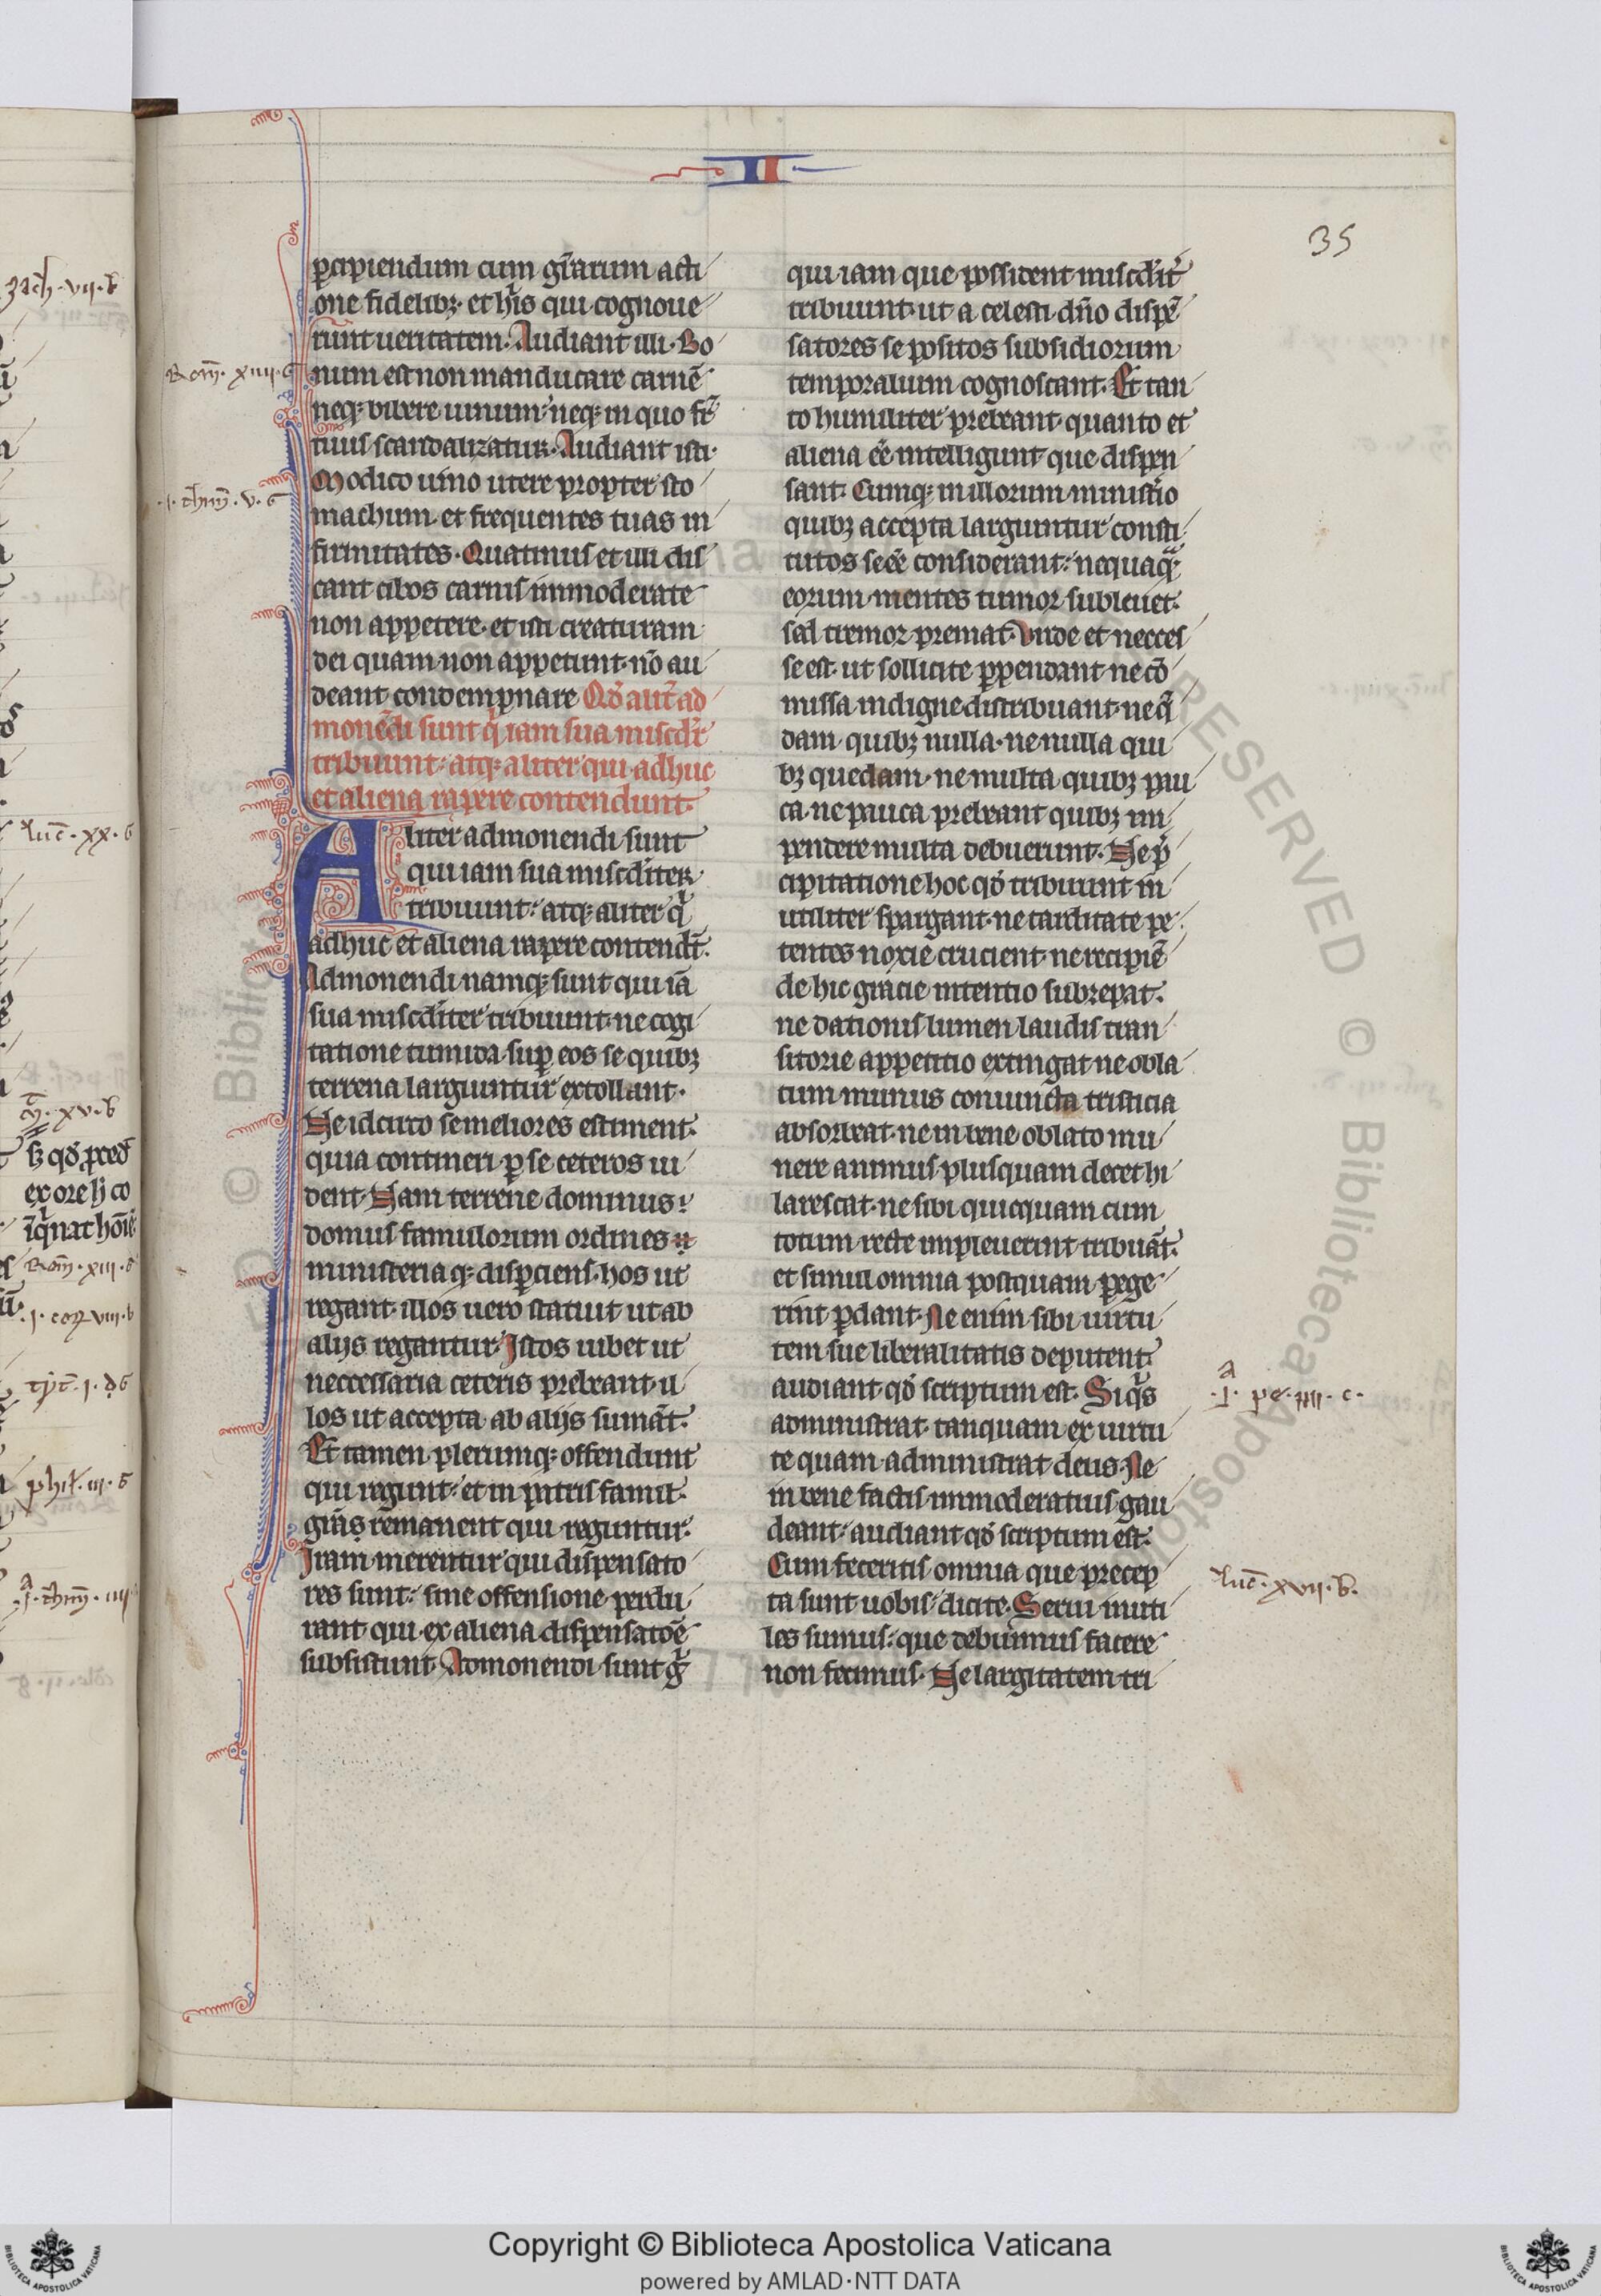 II
35
ꝑcipiendum cum gr̃arum acti
one fidelibꝫ et hiis qui cognoue
runt ueritatem. Audiant illi. Bo
num est non manducare carnē
neqꝫ bibere uinum neqꝫ in quo fr̄
tuus scandalizatur. Audiant isti.
Modico uino utere propter sto
machum et frequentes tuas in
firmitates. Quatinus et illi dis
cant cibos carnis immoderate
non appetere. et isti creaturam
dei quam non appetunt. nō au
deant condempnare Qđ aliť ad
monēdi sunt qͥ iam sua miscďr̃
tribuunt. atqꝫ aliter qui adhuc
et aliena rapere contendunt.
Aliter admonendi sunt
qui iam sua miscďiter
tribuunt. atqꝫ aliter qͥ
adhuc et aliena rapere contendt̄.
Admonendi namqꝫ sunt qui iā
sua miscďiter tribuunt. ne cogi
tatione tumida suꝑ eos se quibꝫ
terrena largiuntur extollant.
Ne idcirco se meliores estiment.
quia contineri ꝑ se ceteros ui
dent. Nam terrene dominus
domus famulorum ordines
ministeriaqꝫ disꝑciens. hos ut
regant. illos uero statuit ut ab
alijs regantur. Istos iubet ut
neccessaria ceteris prebeant. il
los ut accepta ab alijs sumāt.
Et tamen plerumqꝫ offendunt
qui regunt. et in patris famil
grāis remanent qui reguntur.
Iram merentur qui dispensato
res sunt. sine offensione perdu
rant qui ex aliena dispensatōe
subsistunt. Admonendi sunt gͥ
qui iam que possident miscďit̃
tribuunt. ut a celesti dño dispē
satores se positos subsidiorum
temporalium cognoscant. Et tan
to humiliter prebeant. quanto et
aliena eē intelligunt que dispen
sant. Cumqꝫ in illorum minist̃io
quibꝫ accepta largiuntur consti
tutos se eē considerant. nequaqͣꝫ
eorum mentes tumor subleuet.
sꝫ tremor premat. Unde et necces
se est. ut sollicite ꝑpendant ne cō
missa indigne distribuant. ne qͣ
dam quibꝫ nulla. ne nulla qui
bꝫ quedam. ne multa quibꝫ pau
ca. ne pauca prebeant quibꝫ im
pendere multa debuerunt. Ne pͥ
cipitatione hoc qđ tribuunt in
utiliter spargant. ne tarditate pe
tentes noxie crucient. ne recipiē
de hic gracie intentio subrepat.
ne dationis lumen laudis tran
sitorie appetitio extingat. ne obla
tum munus coniuncta tristicia
absorbeat. ne in bene oblato mu
nere animus plusquam decet hi
larescat. ne sibi quicquam cum
totum recte impleuerint tribuāt.
et simul omnia postquam ꝑege
rint ꝑdant. Ne enim sibi uirtu
tem sue liberalitatis deputent.
audiant qđ scriptum est. Si qͥs
administrat. tanquam ex uirtu
te quam administrat deus. Ne
in bene factis immoderatius gau
deant. audiant qđ scriptum est.
Cum feceritis omnia que precep
ta sunt uobis. dicite. Serui inuti
les sumus. que debuimus facere
non fecimus. Ne largitatem tri
Rom̄. xiiii. G
.I. thim̄. v. G
.I. pe. iiii. c.
a
luc̄. xvii. b.
zach. vii. b
luc̄. xx. G
m̄. xv. b
sꝫ qđ ꝓced
ex ore hͥ co
īqͥnat hoīē
Rom̄. xiii. G
.I. cor. viii. b
tyt̄. I. d G
phil. iii. G
a
.I. thim̄. iiii
Copyright © Biblioteca Apostolica Vaticana
powered by AMLAD·NTT DATA